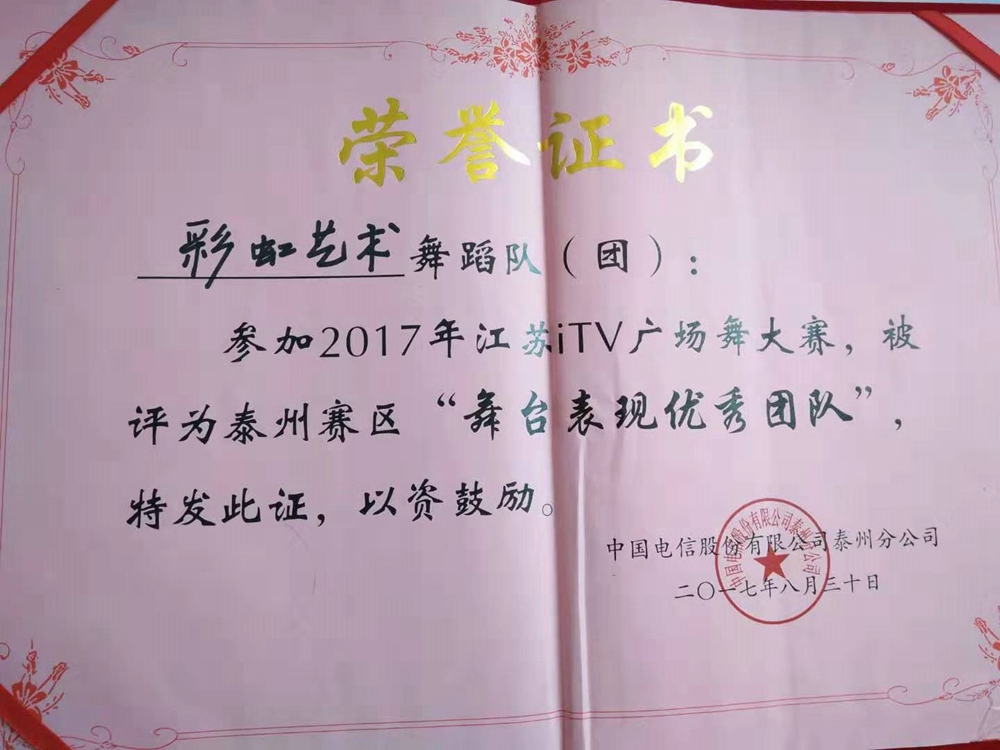 荣誉证书
彩虹艺术舞蹈队（团）：
参加2017年江苏iTV广场舞大赛，被
评为泰州赛区“舞台表现优秀团队”，
特发此证，以资鼓励。
中国电信股份有限公司泰州分公司
二〇一七年八月三十日
中国电信股份有限公司泰州分公司